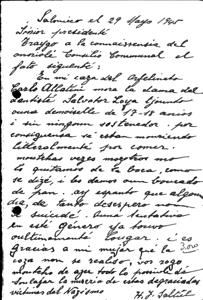 Salonico el 29 Mayo 1945
Siñor presidenté
Traygo a la connaissencia del
onorable Consilio Comunal el
fato siguente :
En mi caza del Orfelinato
Carlo Allatini mora la dama del
dentiste Salvator
ouna demoiselle de 17-18 anios
i sin ningoun
consiguiente se estan mouriendo
litteralmente por comer.
mountchas vezes mozotros mos
lo quitamos de la boca, como
se dize, i le damos oun boucado
de pan. ay espanto que algoun
dia, de tanto desespero non
se suicide. Ouna tentativa
en esté género ya touvo
oultimamente lougar, i es
gracias a mi mujer que la
coza non se realizo, vos rogo
mountcho de azer todo lo possible de
soulajar la mizeria de estas degraciadas
victimas del Nazismo